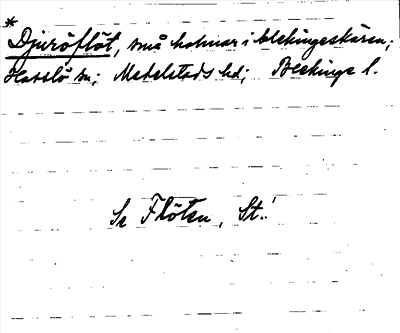 * Djuröflöt, små holmar i blekingeskären;
Hasslö sn; Medelstads hd; Blekinge l.
Se Flöten, St.!